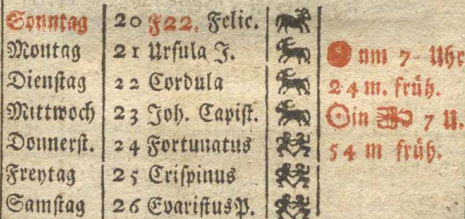 Sonntag 20 F22. Felic.
Montag 21 Ursula J. um 7 Uhr
Dienstag 22 Cordula 24 m. früh.
Mittwoch 23 Joh. Capist. ☉in ♏ 7 U.
Donnerst. 24 Fortunatus 54 m früh.
Freytag 25 Crispinus
Samstag 26 Evaristus P.